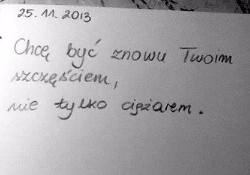 25.11.2013
Chcę być znowu Twoim
szczęściem,
nie tylko ciężarem.